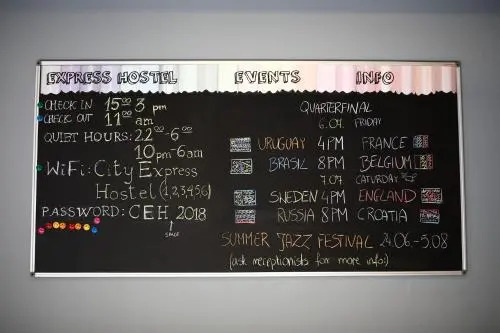 EXPRESS HOSTEL EVENTS INFO
CHECK IN 15⁰⁰ 3 pm
CHECK OUT 11⁰⁰ am
QUIET HOURS: 22⁰⁰-6⁰⁰
10pm-6am
WiFi: City Express
Hostel (1,2,3,4,5,6)
PASSWORD: CEH_2018
SPACE
QUARTERFINAL
6.07. FRIDAY
URUGUAY 4PM FRANCE
BRASIL 8PM BELGIUM
7.07 CATURDAY
SWEDEN 4PM ENGLAND
RUSSIA 8PM CROATIA
SUMMER JAZZ FESTIVAL 24.06.-5.08
(ask receptionists for more info:)